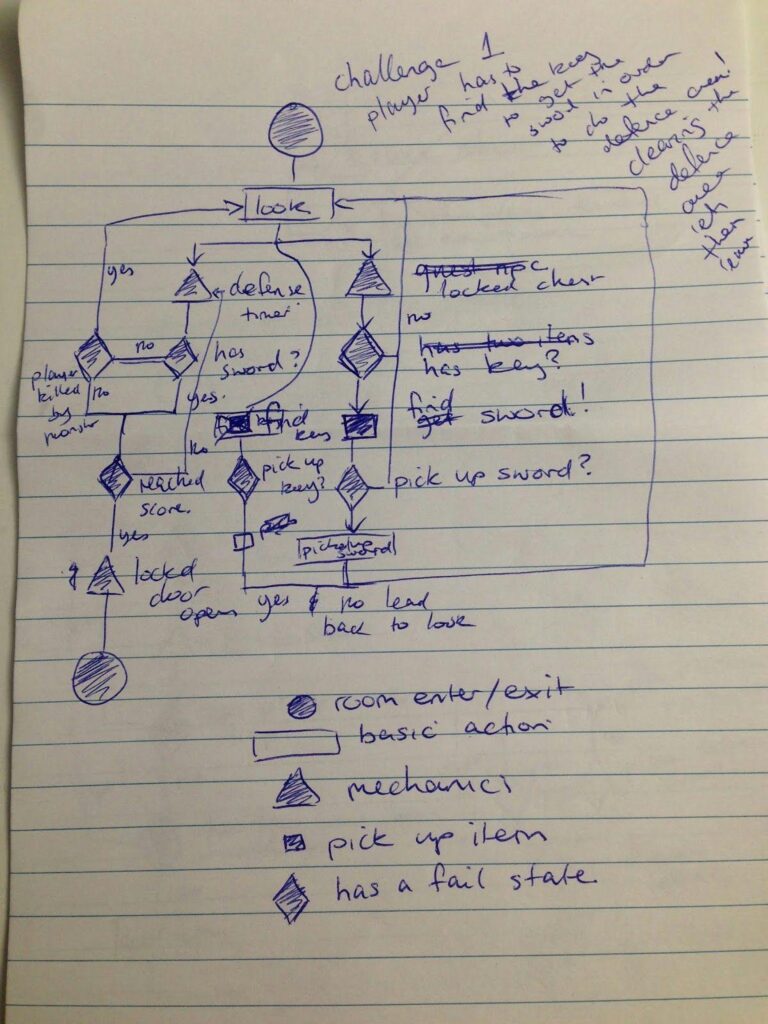 challenge 1
player has to
find the key
to get the
sword in order
to do the
defence area!
clearing the
defence
area
lets
them
leave
look
yes
defense
timer
quest npc
locked chest
no
no
has
sword?
has two items
has key?
player
killed
by
monster
no
yes.
no
find
key
find
get sword!
reached
score.
pick up
key?
pick up sword?
yes
pick up
sword
locked
door
opens
yes & no lead
back to look
room enter/exit
basic action
mechanics
pick up item
has a fail state.